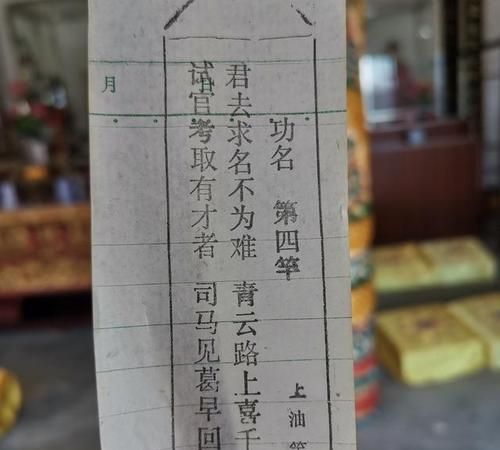 功名 第四竿 上油
君去求名不为难 青云路上喜千
试官考取有才者 司马见葛早回
月 日